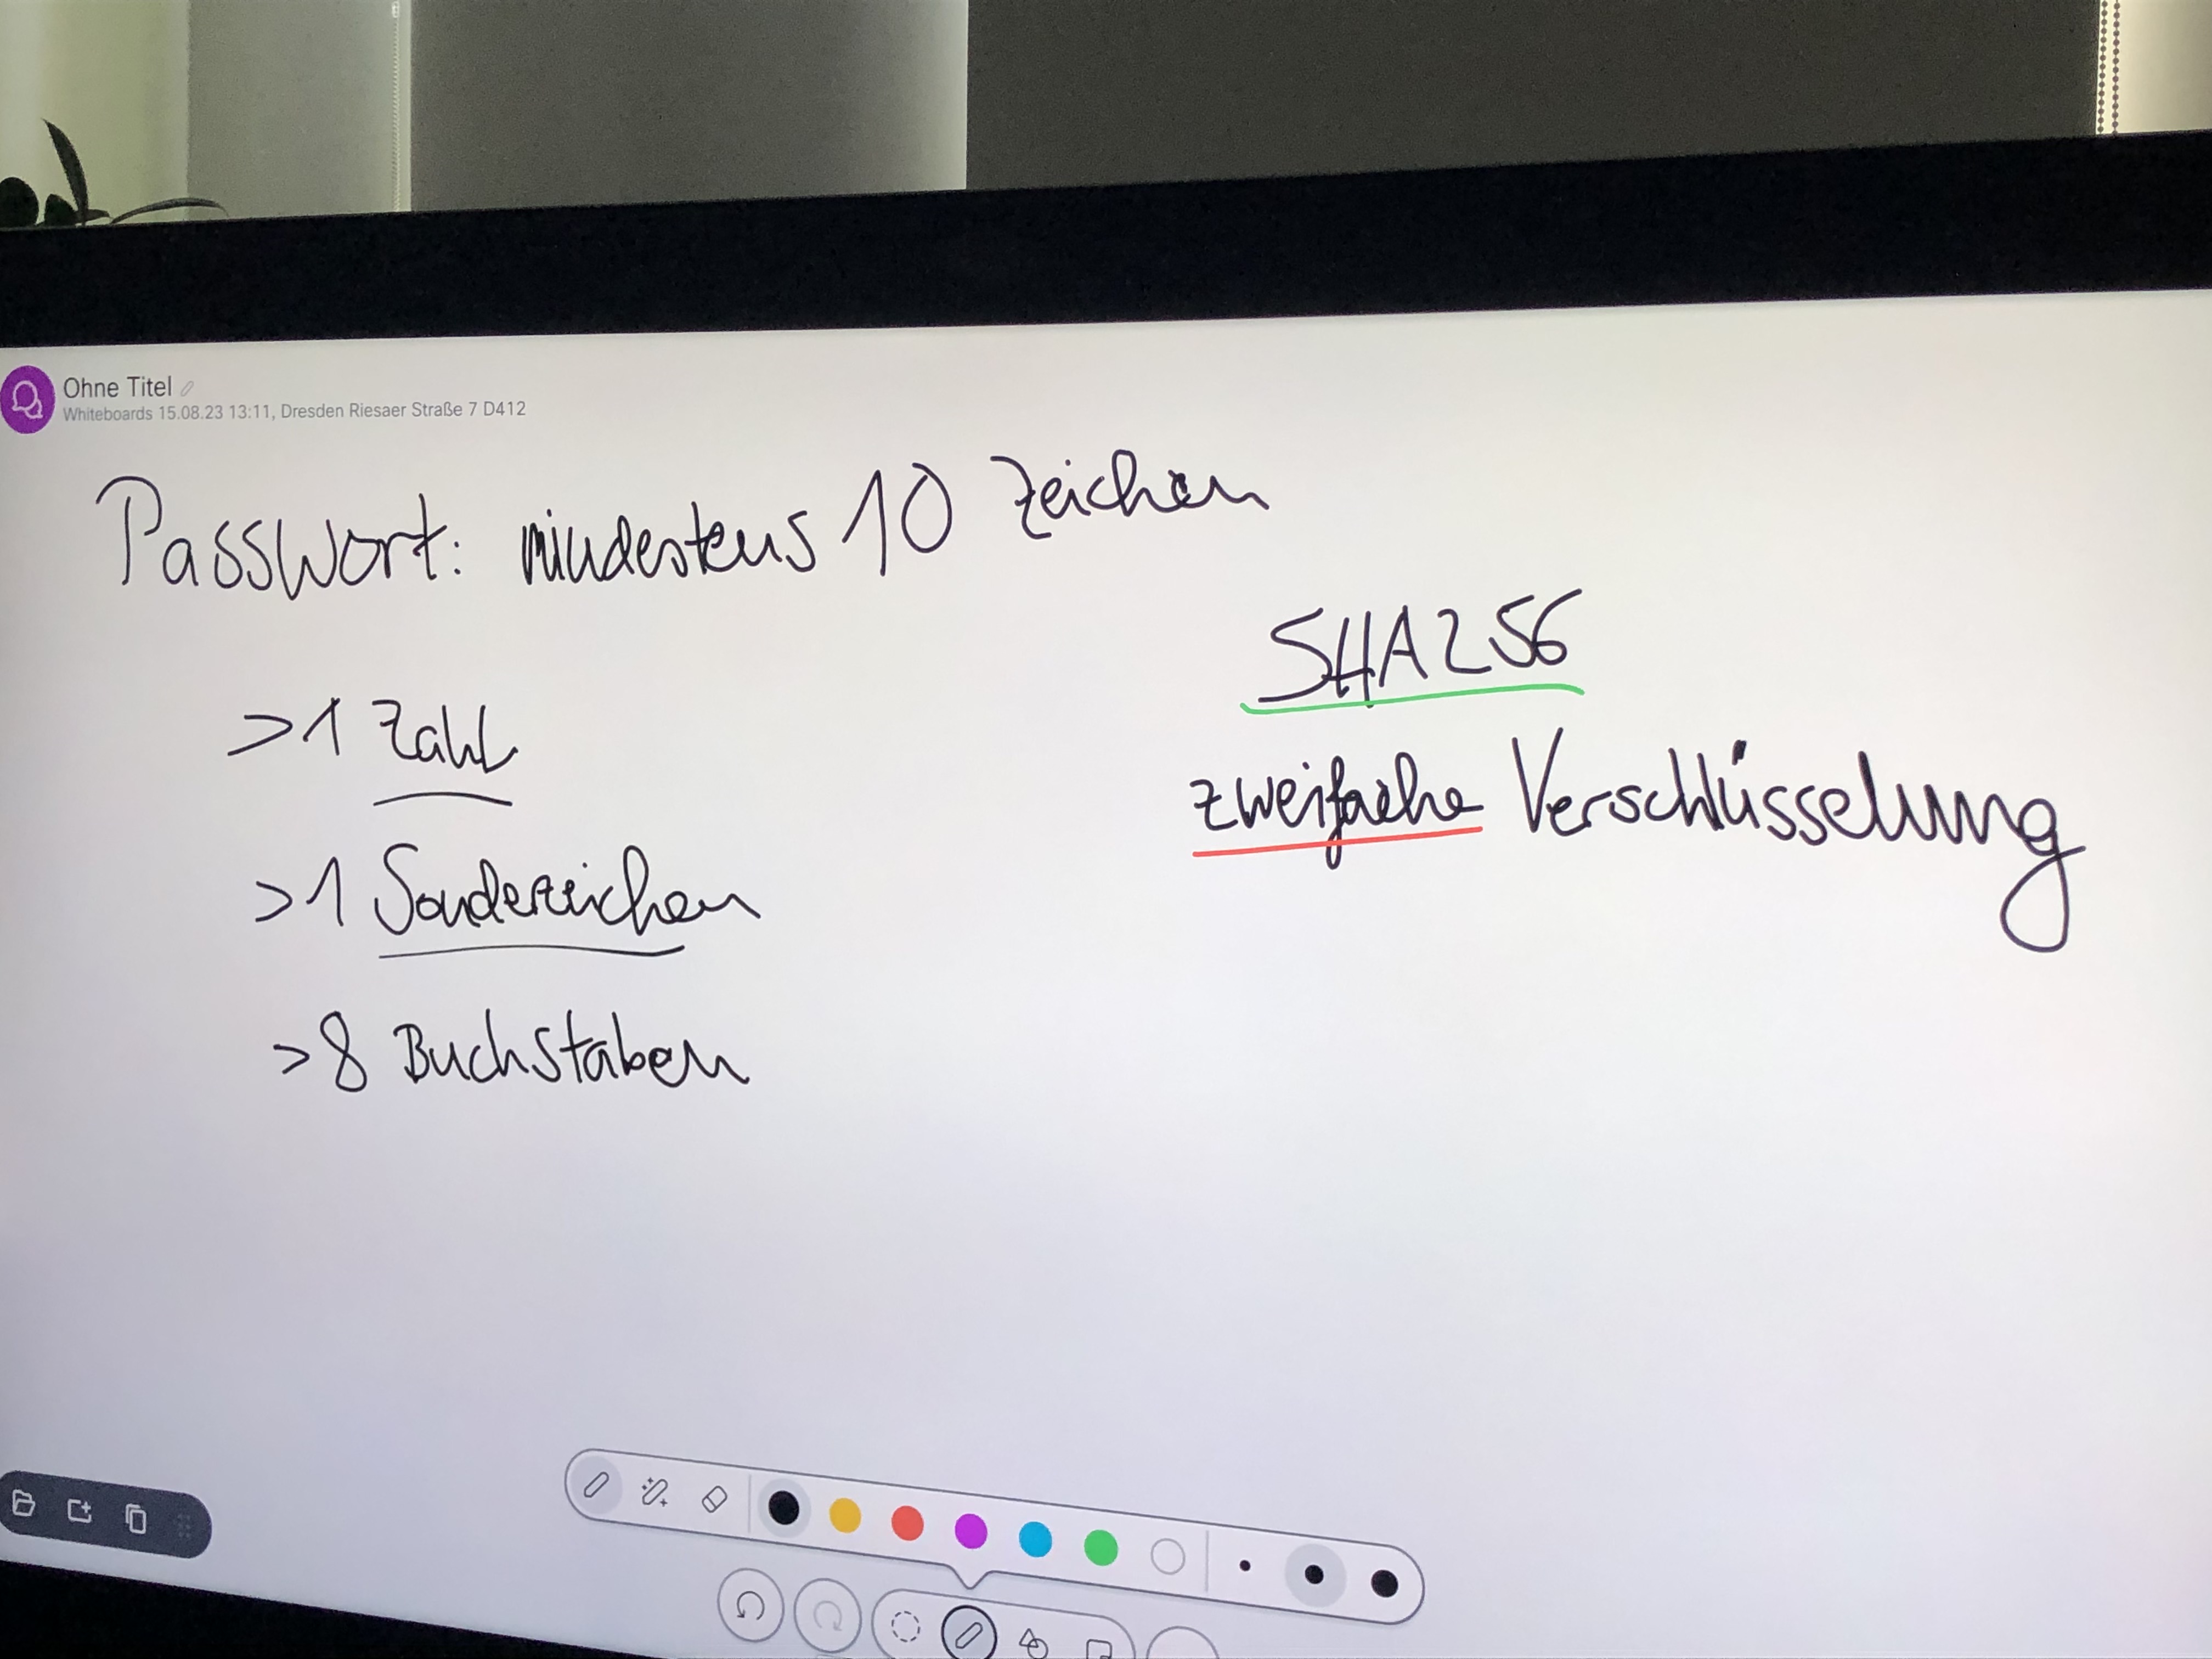 Ohne Titel
Whiteboards 15.08.23 13:11, Dresden Riesaer Straße 7 D412
Passwort: mindestens 10 Zeichen
>1 Zahl
>1 Sonderzeichen
>8 Buchstaben
SHA256
zweifache Verschlüsselung